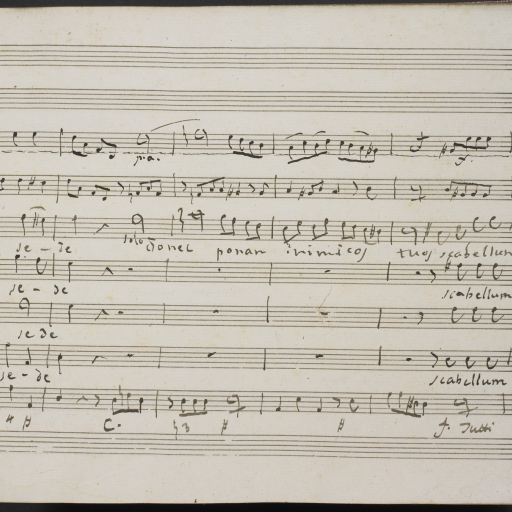 p.a.
f
se - de solo donec ponam inimicos tuos scabellum
se - de scabellum
se de
se - de scabellum
C. f. Tutti